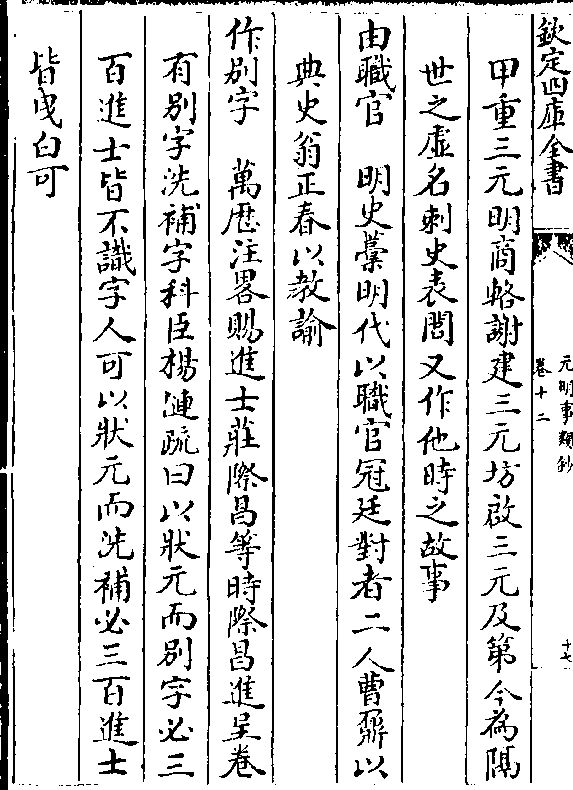 欽定四庫全書
元明事類鈔
卷十二
十七
甲重三元明商輅謝建三元坊啟三元及第今為隔
世之虛名刺史表閭又作他時之故事
由職官　明史藁明代以職官冠廷對者二人曹鼐以
典史翁正春以教諭
作别字　萬厯注畧賜進士莊際昌等時際昌進呈卷
有别字洗補字科臣楊漣疏曰以狀元而别字必三
百進士皆不識字人可以狀元而洗補必三百進士
皆曵白可